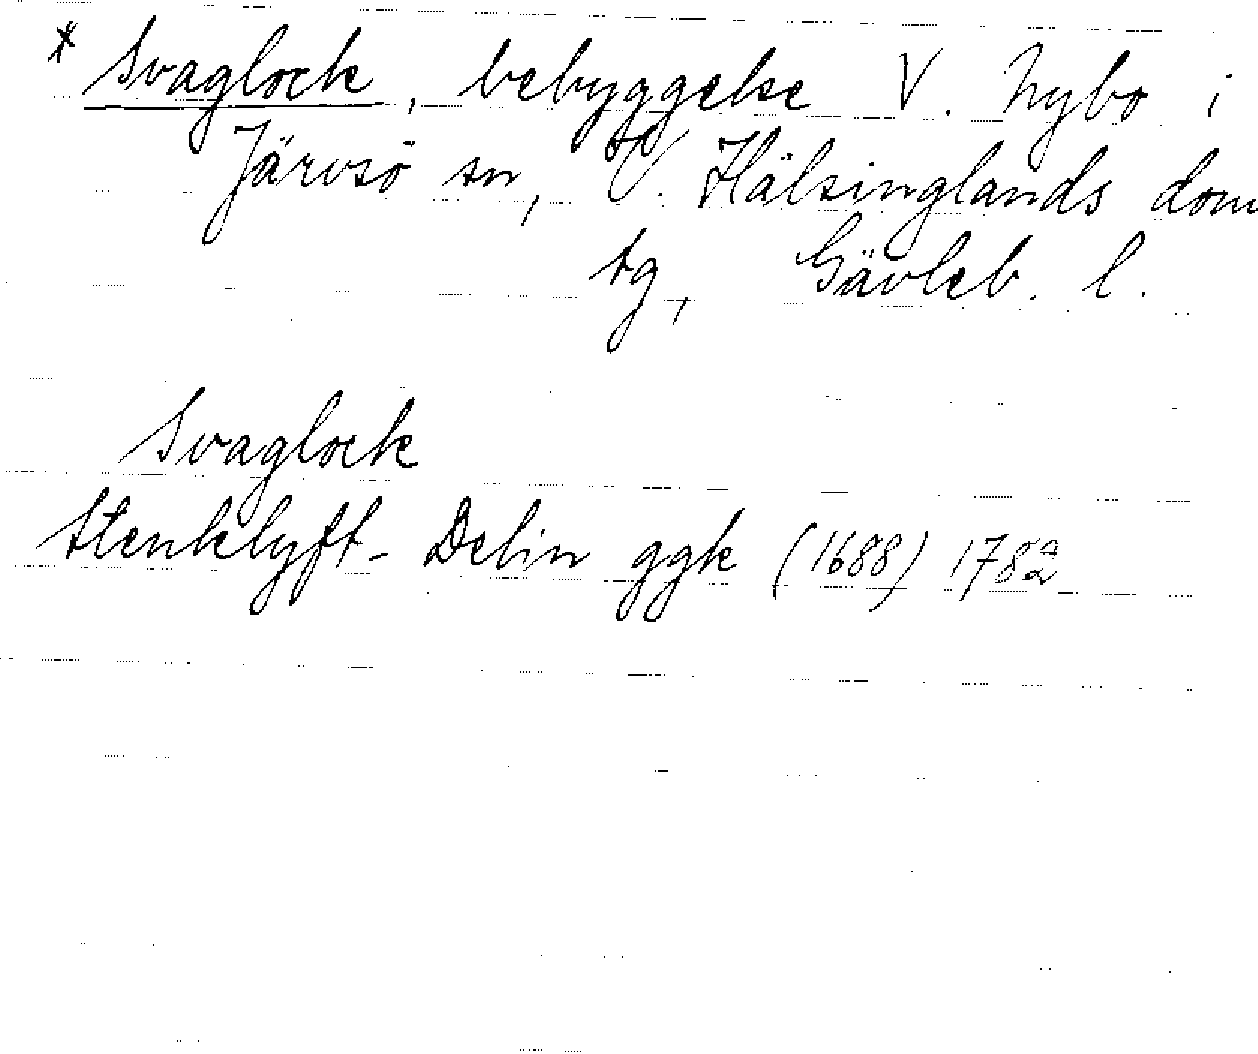 * Svaglock, bebyggelse V. Nybo i
Järvsö sn, V. Hälsinglands dom
sg, Gävleb. l.
Svaglock
Stenklyft- Delin ggk (1688) 1782